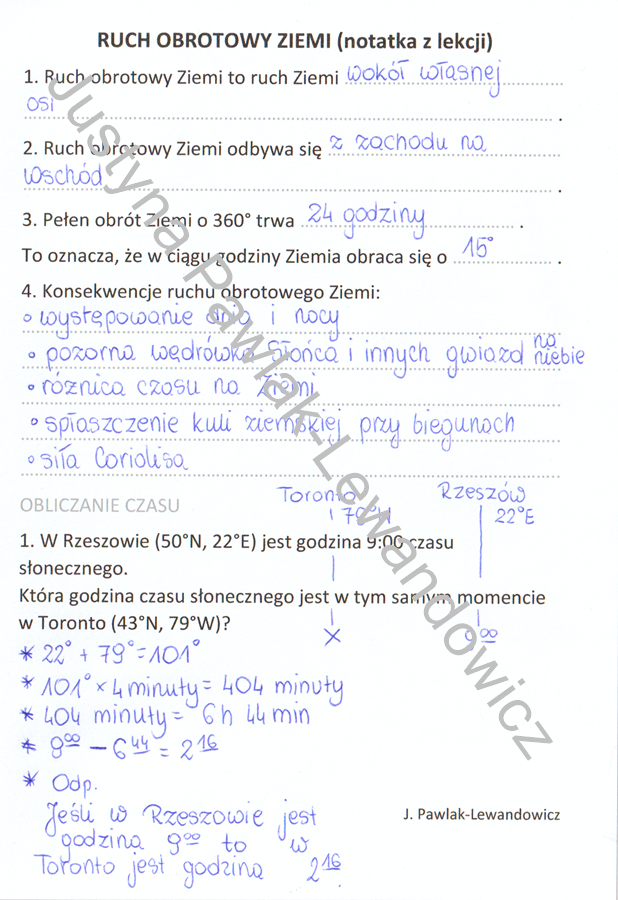 RUCH OBROTOWY ZIEMI (notatka z lekcji)
1. Ruch obrotowy Ziemi to ruch Ziemi wokół własnej
osi .
2. Ruch obrotowy Ziemi odbywa się z zachodu na
wschód .
3. Pełen obrót Ziemi o 360° trwa 24 godziny .
To oznacza, że w ciągu godziny Ziemia obraca się o 15° .
4. Konsekwencje ruchu obrotowego Ziemi:
• występowanie dnia i nocy
• pozorna wędrówka Słońca i innych gwiazd na niebie
• różnica czasu na Ziemi
• spłaszczenie kuli ziemskiej przy biegunach
• siła Coriolisa
Toronto Rzeszów
OBLICZANIE CZASU 79°W 22°E
1. W Rzeszowie (50°N, 22°E) jest godzina 9:00 czasu
słonecznego.
Która godzina czasu słonecznego jest w tym samym momencie
w Toronto (43°N, 79°W)? X 9⁰⁰
* 22° + 79° = 101°
* 101° × 4 minuty = 404 minuty
* 404 minuty = 6h 44 min
* 9⁰⁰ – 6⁴⁴ = 2¹⁶
* Odp.
Jeśli w Rzeszowie jest
J. Pawlak-Lewandowicz
godzina 9⁰⁰ to w
Toronto jest godzina 2¹⁶.
Justyna Pawlak-Lewandowicz